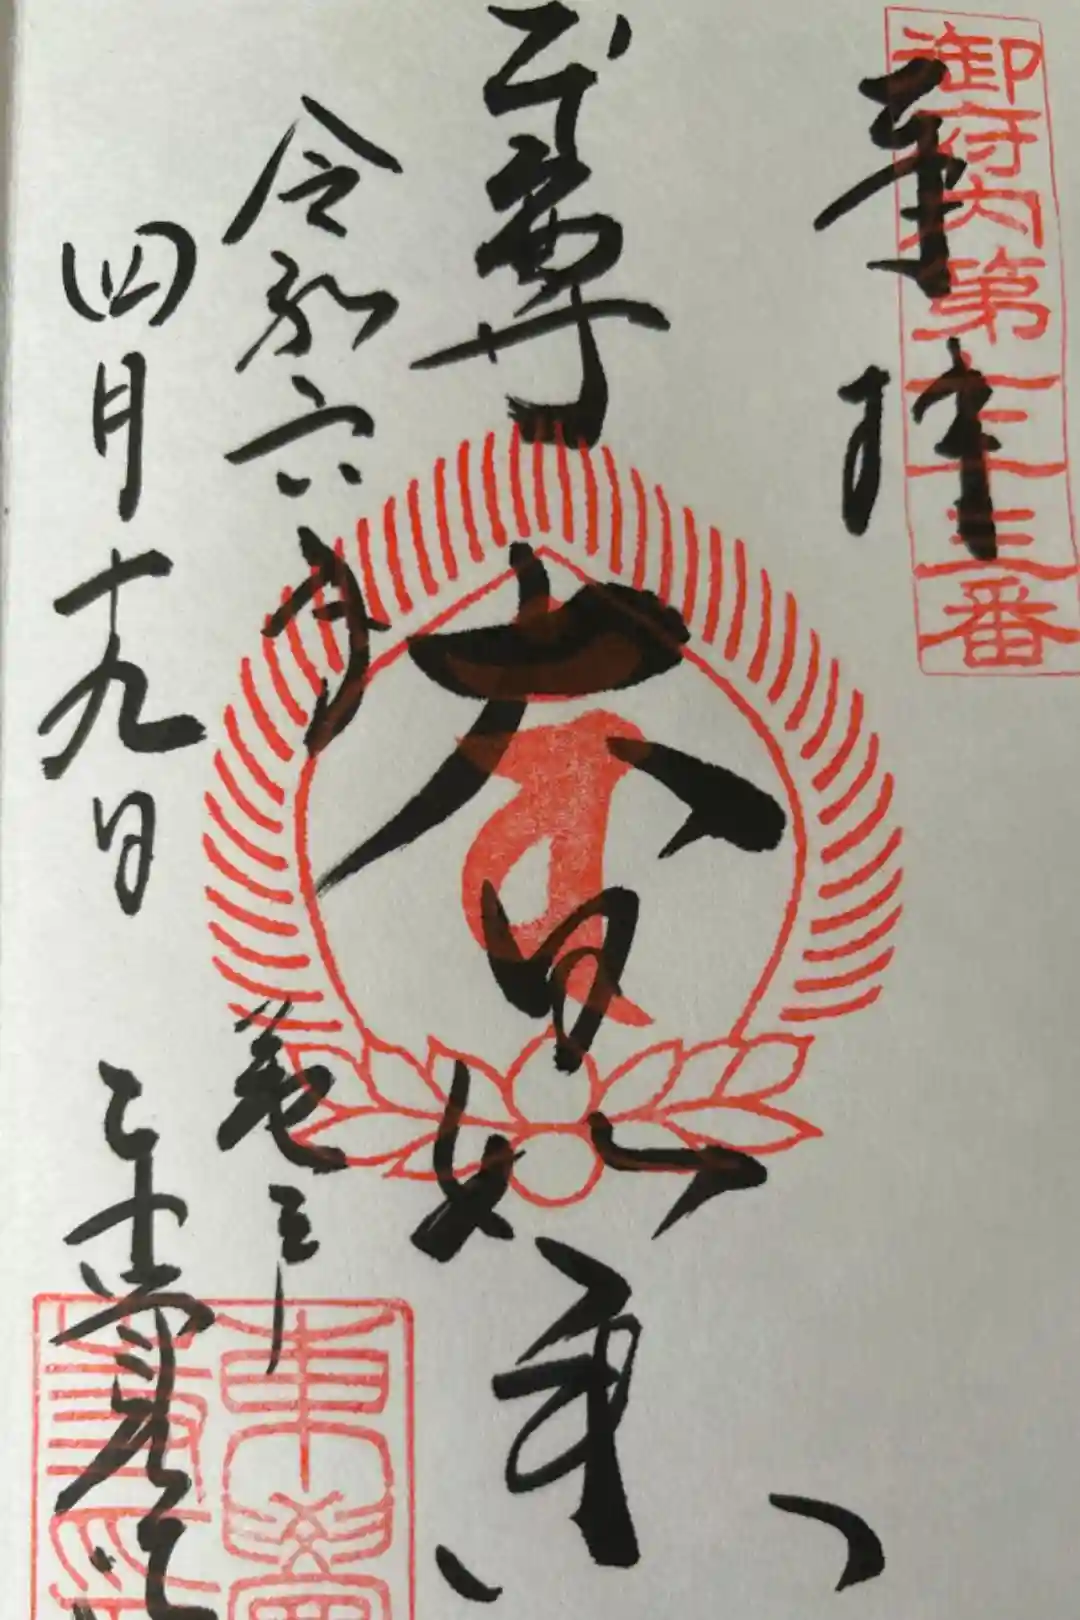 御府内第七十三番
奉拝
本尊大日如来
令和六年
四月十九日
亀戸